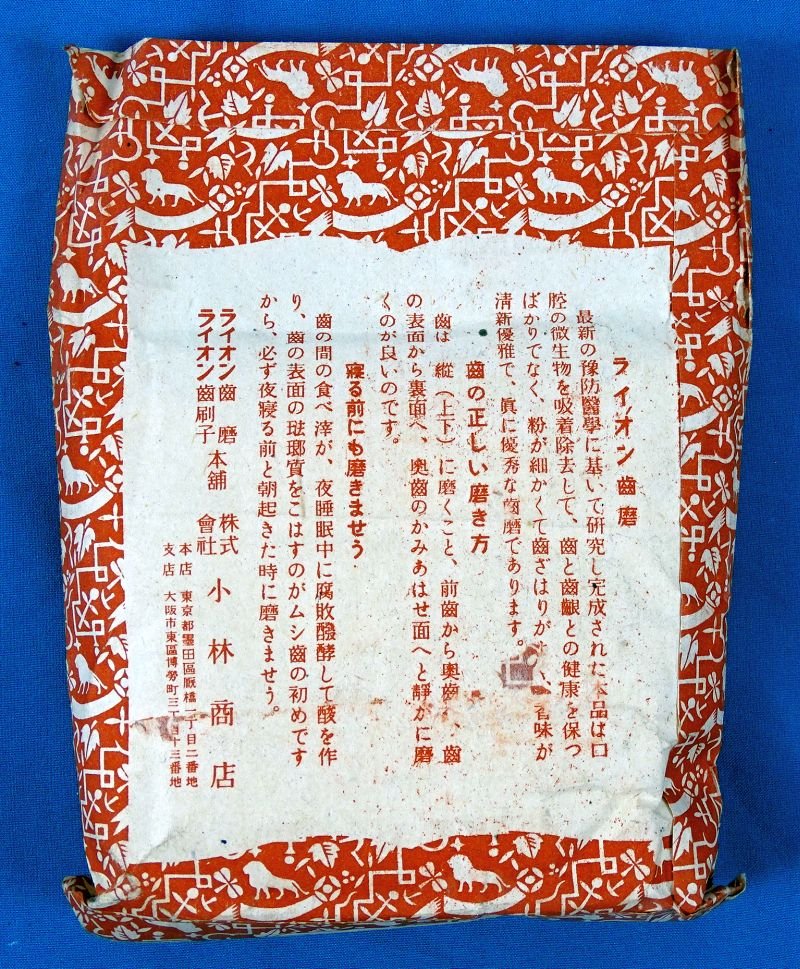 ライオン齒磨
最新の豫防醫學に基いて研究し完成された本品は口
腔の微生物を吸着除去して、齒と齒齦との健康を保つ
ばかりでなく、粉が細かくて齒ざはりが 、香味が
清新優雅で、眞に優秀な齒磨であります。
齒の正しい磨き方
齒は 縱(上下)に磨くこと、前齒から奧齒 、齒
の表面から裏面へ、奧齒のかみあはせ面へと靜かに磨
くのが良いのです。
寢る前にも磨きませう.
齒の間の食べ滓が、夜睡眠中に腐敗醱酵して酸を作
り、齒の表面の琺瑯質をこはすのがムシ齒の初めです
から、必ず夜寢る前と朝起きた時に磨きませう。
ライオン齒磨
ライオン齒刷子
本舖
株式會社 小林商店
本店 東京都墨田區厩橋一丁目二番地
支店 大阪市東區博勞町三丁目十三番地